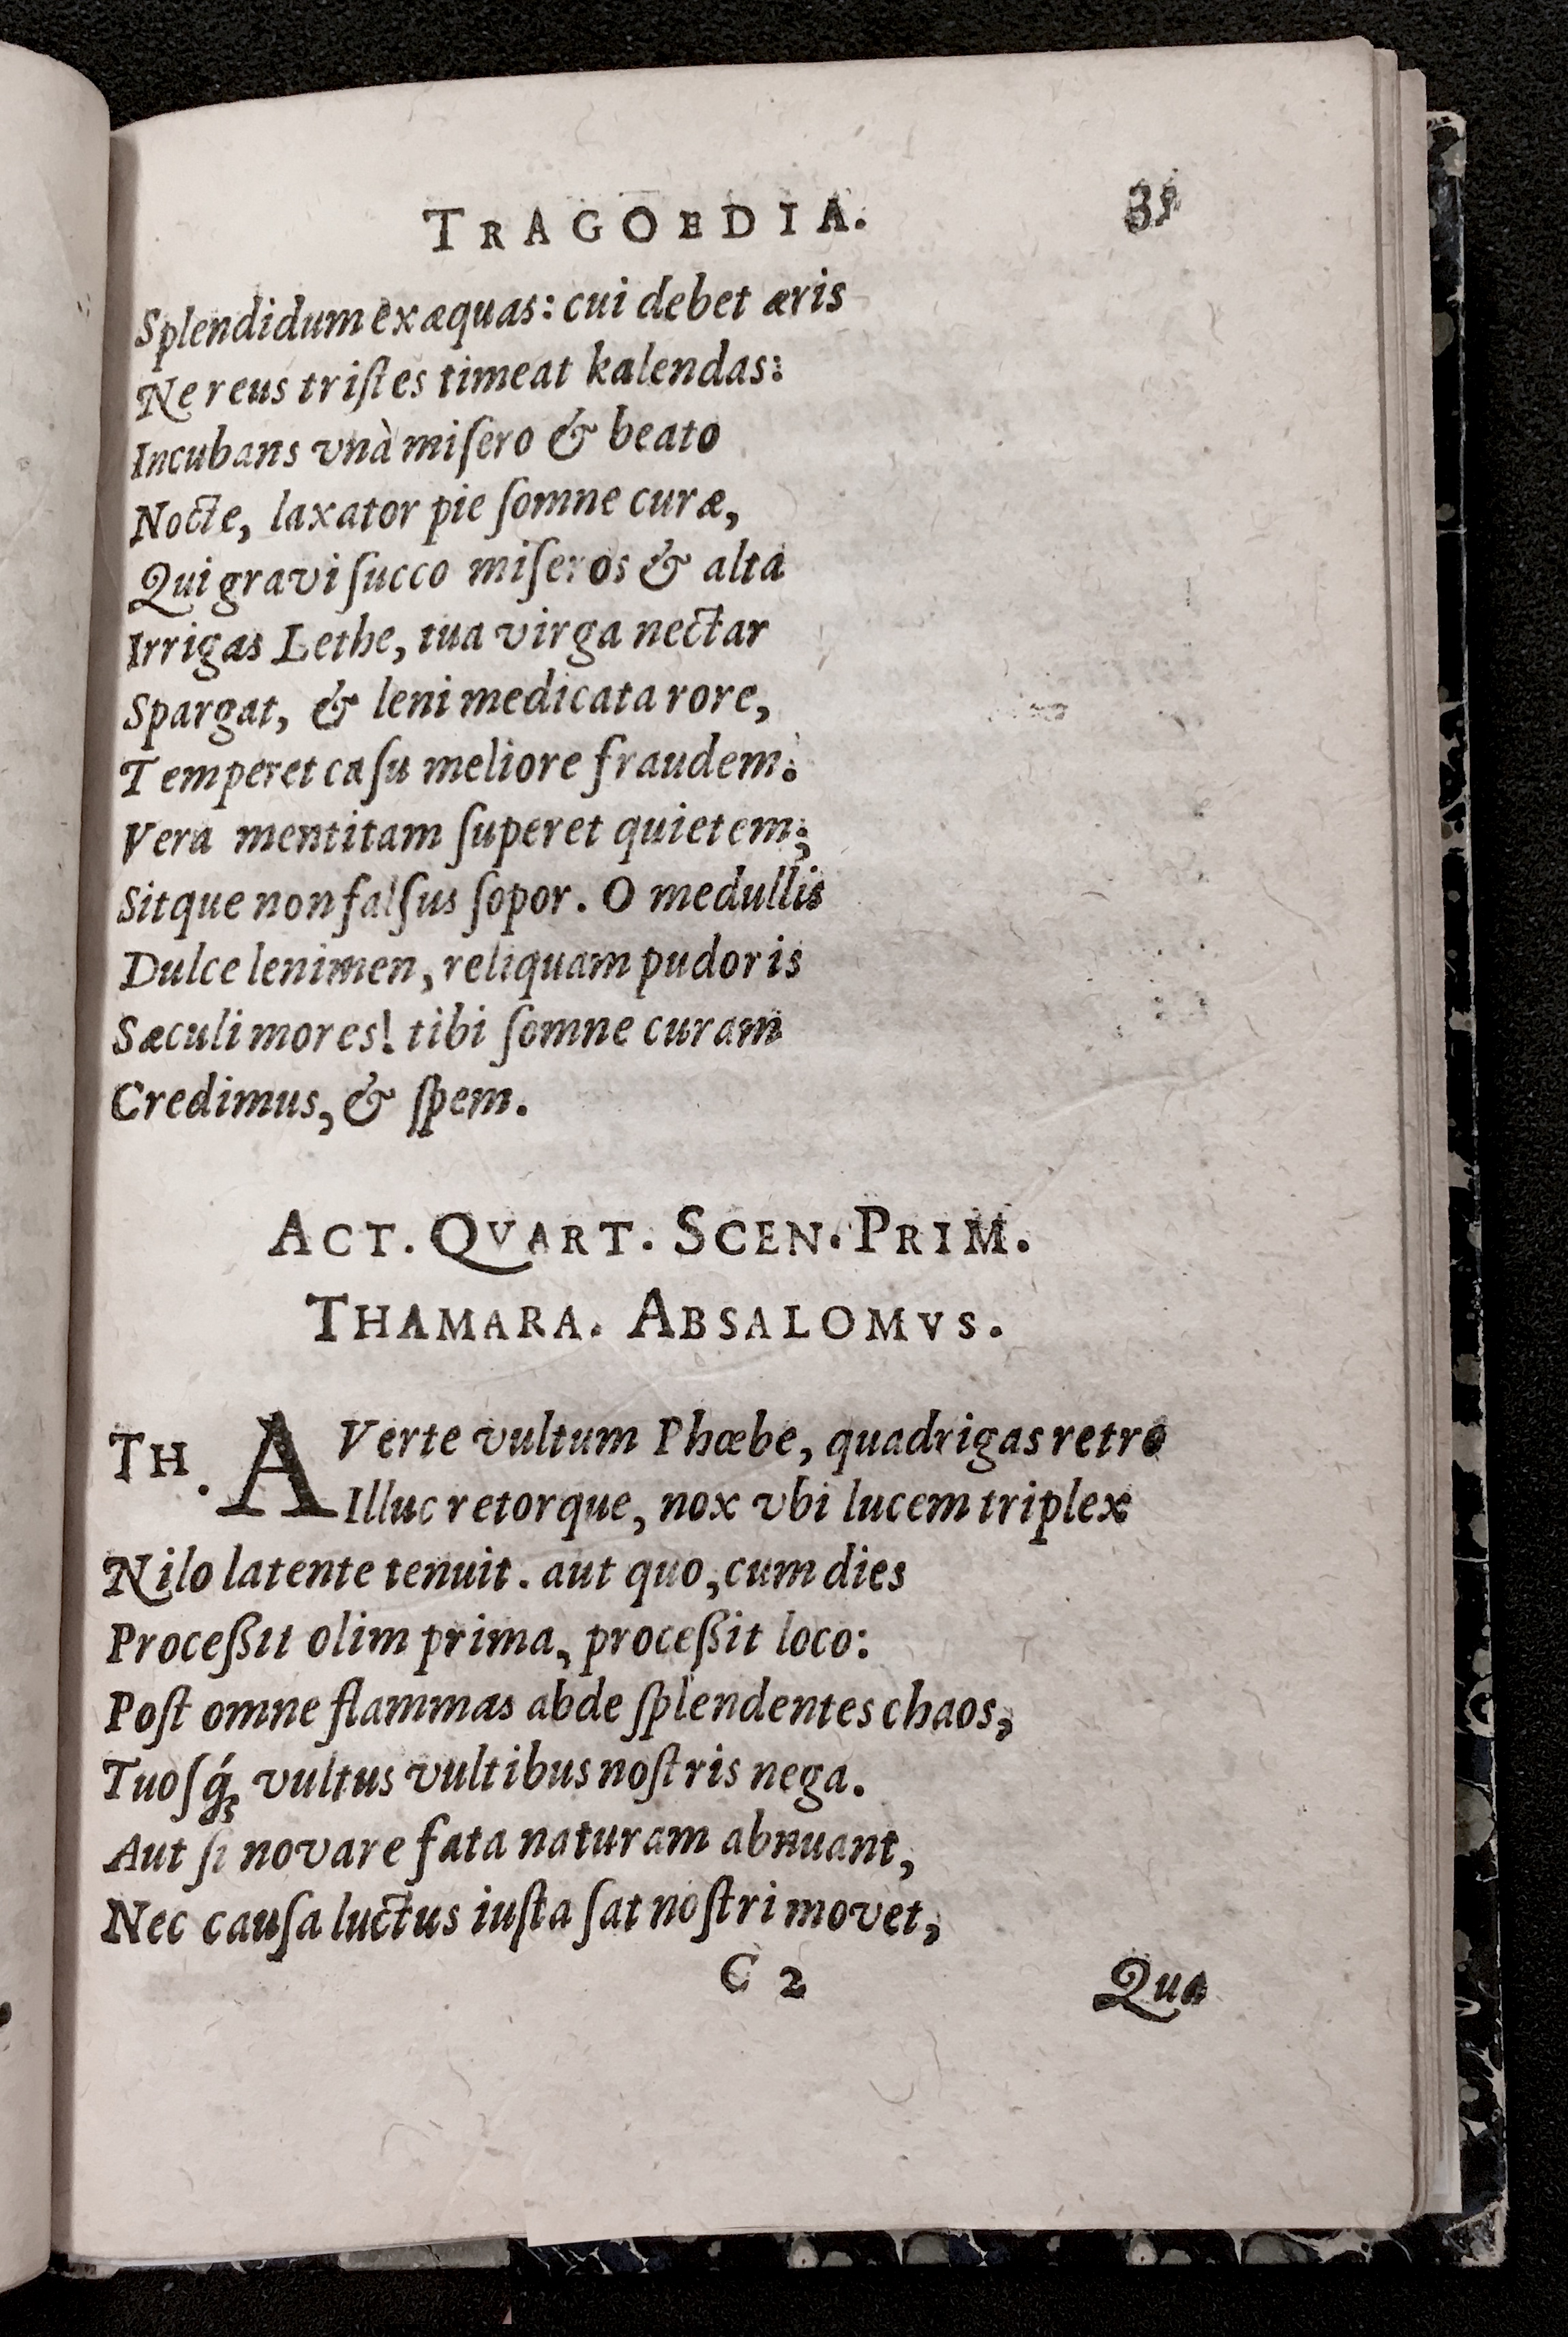 TRAGOEDIA. 35
Splendidum exæquas: cui debet æris
Ne reus triſtes timeat kalendas:
Incubans vnà miſero & beato
Nocte, laxator pie ſomne curæ,
Qui gravi ſucco miſeros & alta
Irrigas Lethe, tua virga nectar
Spargat, & leni medicata rore,
Temperet caſu meliore fraudem:
Vera mentitam ſuperet quietem;
Sitque non falſus ſopor. O medullis
Dulce lenimen, reliquam pudoris
Sæculi mores! tibi ſomne curam
Credimus, & ſpem.
ACT. QVART. SCEN. PRIM.
THAMARA. ABSALOMVS.
TH. AVerte vultum Phœbe, quadrigas retro
Illuc retorque, nox vbi lucem triplex
Nilo latente tenuit. aut quo, cum dies
Proceßit olim prima, proceßit loco:
Poſt omne flammas abde ſplendentes chaos,
Tuoſq́; vultus vultibus noſtris nega.
Aut ſi novare fata naturam abnuant,
Nec cauſa luctus iuſta ſat noſtri movet,
C 2 Qua